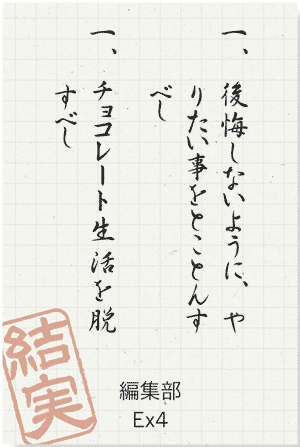 一、後悔しないように、や
りたい事をとことんす
べし
一、チョコレート生活を脱
すべし
結実
編集部
Ex4